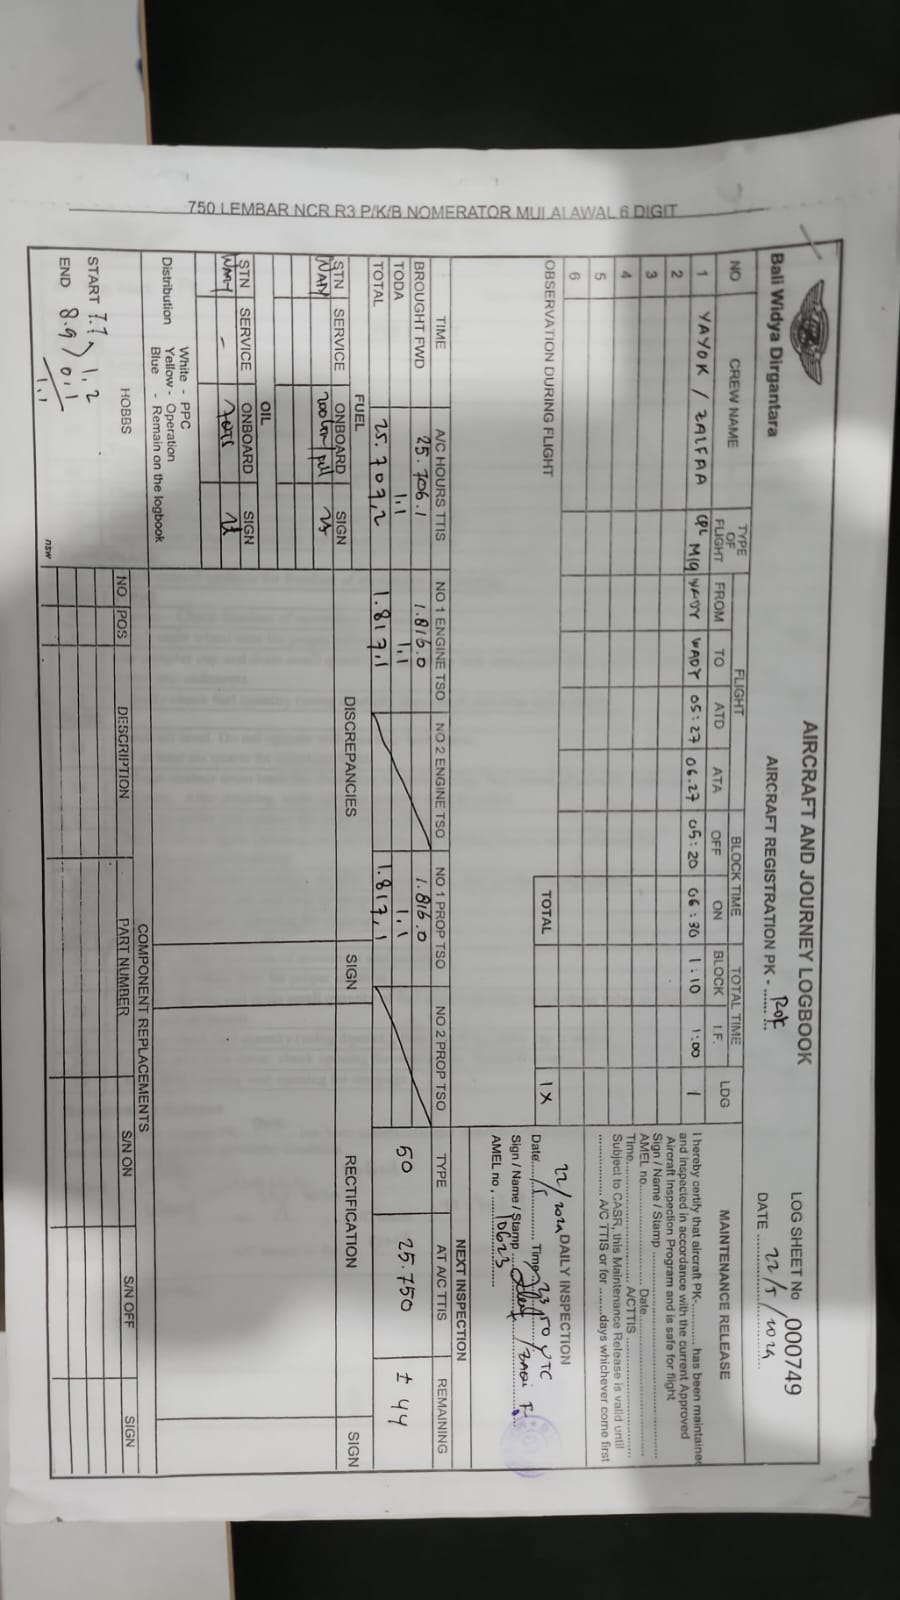 750 LEMBAR NCR R3 P/K/B NOMERATOR MULAI AWAL 6 DIGIT
Bali Widya Dirgantara
AIRCRAFT AND JOURNEY LOGBOOK
AIRCRAFT REGISTRATION PK - ......
LOG SHEET No 000749
DATE 22/5/2024
NO CREW NAME TYPE OF FLIGHT FLIGHT BLOCK TIME TOTAL TIME LDG
FROM TO ATD ATA OFF ON BLOCK I.F.
1 YAYOK / ZALFAA CPL WADY WADY 05:27 06.27 05:20 06:30 1:10 1:00 1
2
3
4
5
6
TOTAL 1X
OBSERVATION DURING FLIGHT
MAINTENANCE RELEASE
I hereby certify that aircraft PK-........... has been maintained
and inspected in accordance with the current Approved
Aircraft Inspection Program and is safe for flight
Sign / Name / Stamp
AMEL no. Date
Time A/CTTIS
Subject to CASR, this Maintenance Release is valid until
A/C TTIS or for ........days whichever come first
DAILY INSPECTION
Date Time 2350 UTC
Sign / Name / Stamp
AMEL no. 10623
TIME A/C HOURS TTIS NO 1 ENGINE TSO NO 2 ENGINE TSO NO 1 PROP TSO NO 2 PROP TSO
BROUGHT FWD 25.706.1 1.816.0 1.816.0
TODA 1.1 1.1 1.1
TOTAL 25.707,2 1.817,1 1.817,1
NEXT INSPECTION
TYPE AT A/C TTIS REMAINING
50 25.750 ± 44
FUEL
STN SERVICE ONBOARD SIGN
OIL
STN SERVICE ONBOARD SIGN
-
DISCREPANCIES SIGN RECTIFICATION SIGN
Distribution White - PPC
Yellow - Operation
Blue - Remain on the logbook
COMPONENT REPLACEMENTS
NO POS DESCRIPTION PART NUMBER S/N ON S/N OFF SIGN
HOBBS
START 7.7
1,2
END 8.9
0.1
1.1
nsw